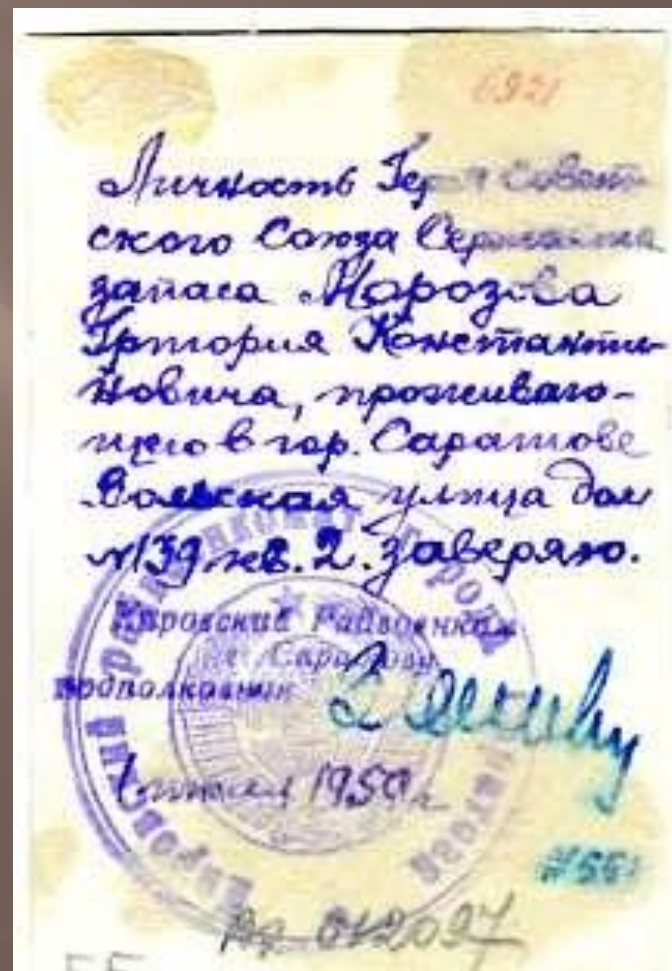 6921
Личность Героя Совет-
ского Союза Сержанта
запаса Морозова
Григория Константи-
новича, проживаю-
щего в гор. Саратове
Вольская улица дом
№139 кв. 2. заверяю.
Кировский Райвоенком
г. Саратова
Подполковник
1950 г.
Кировский